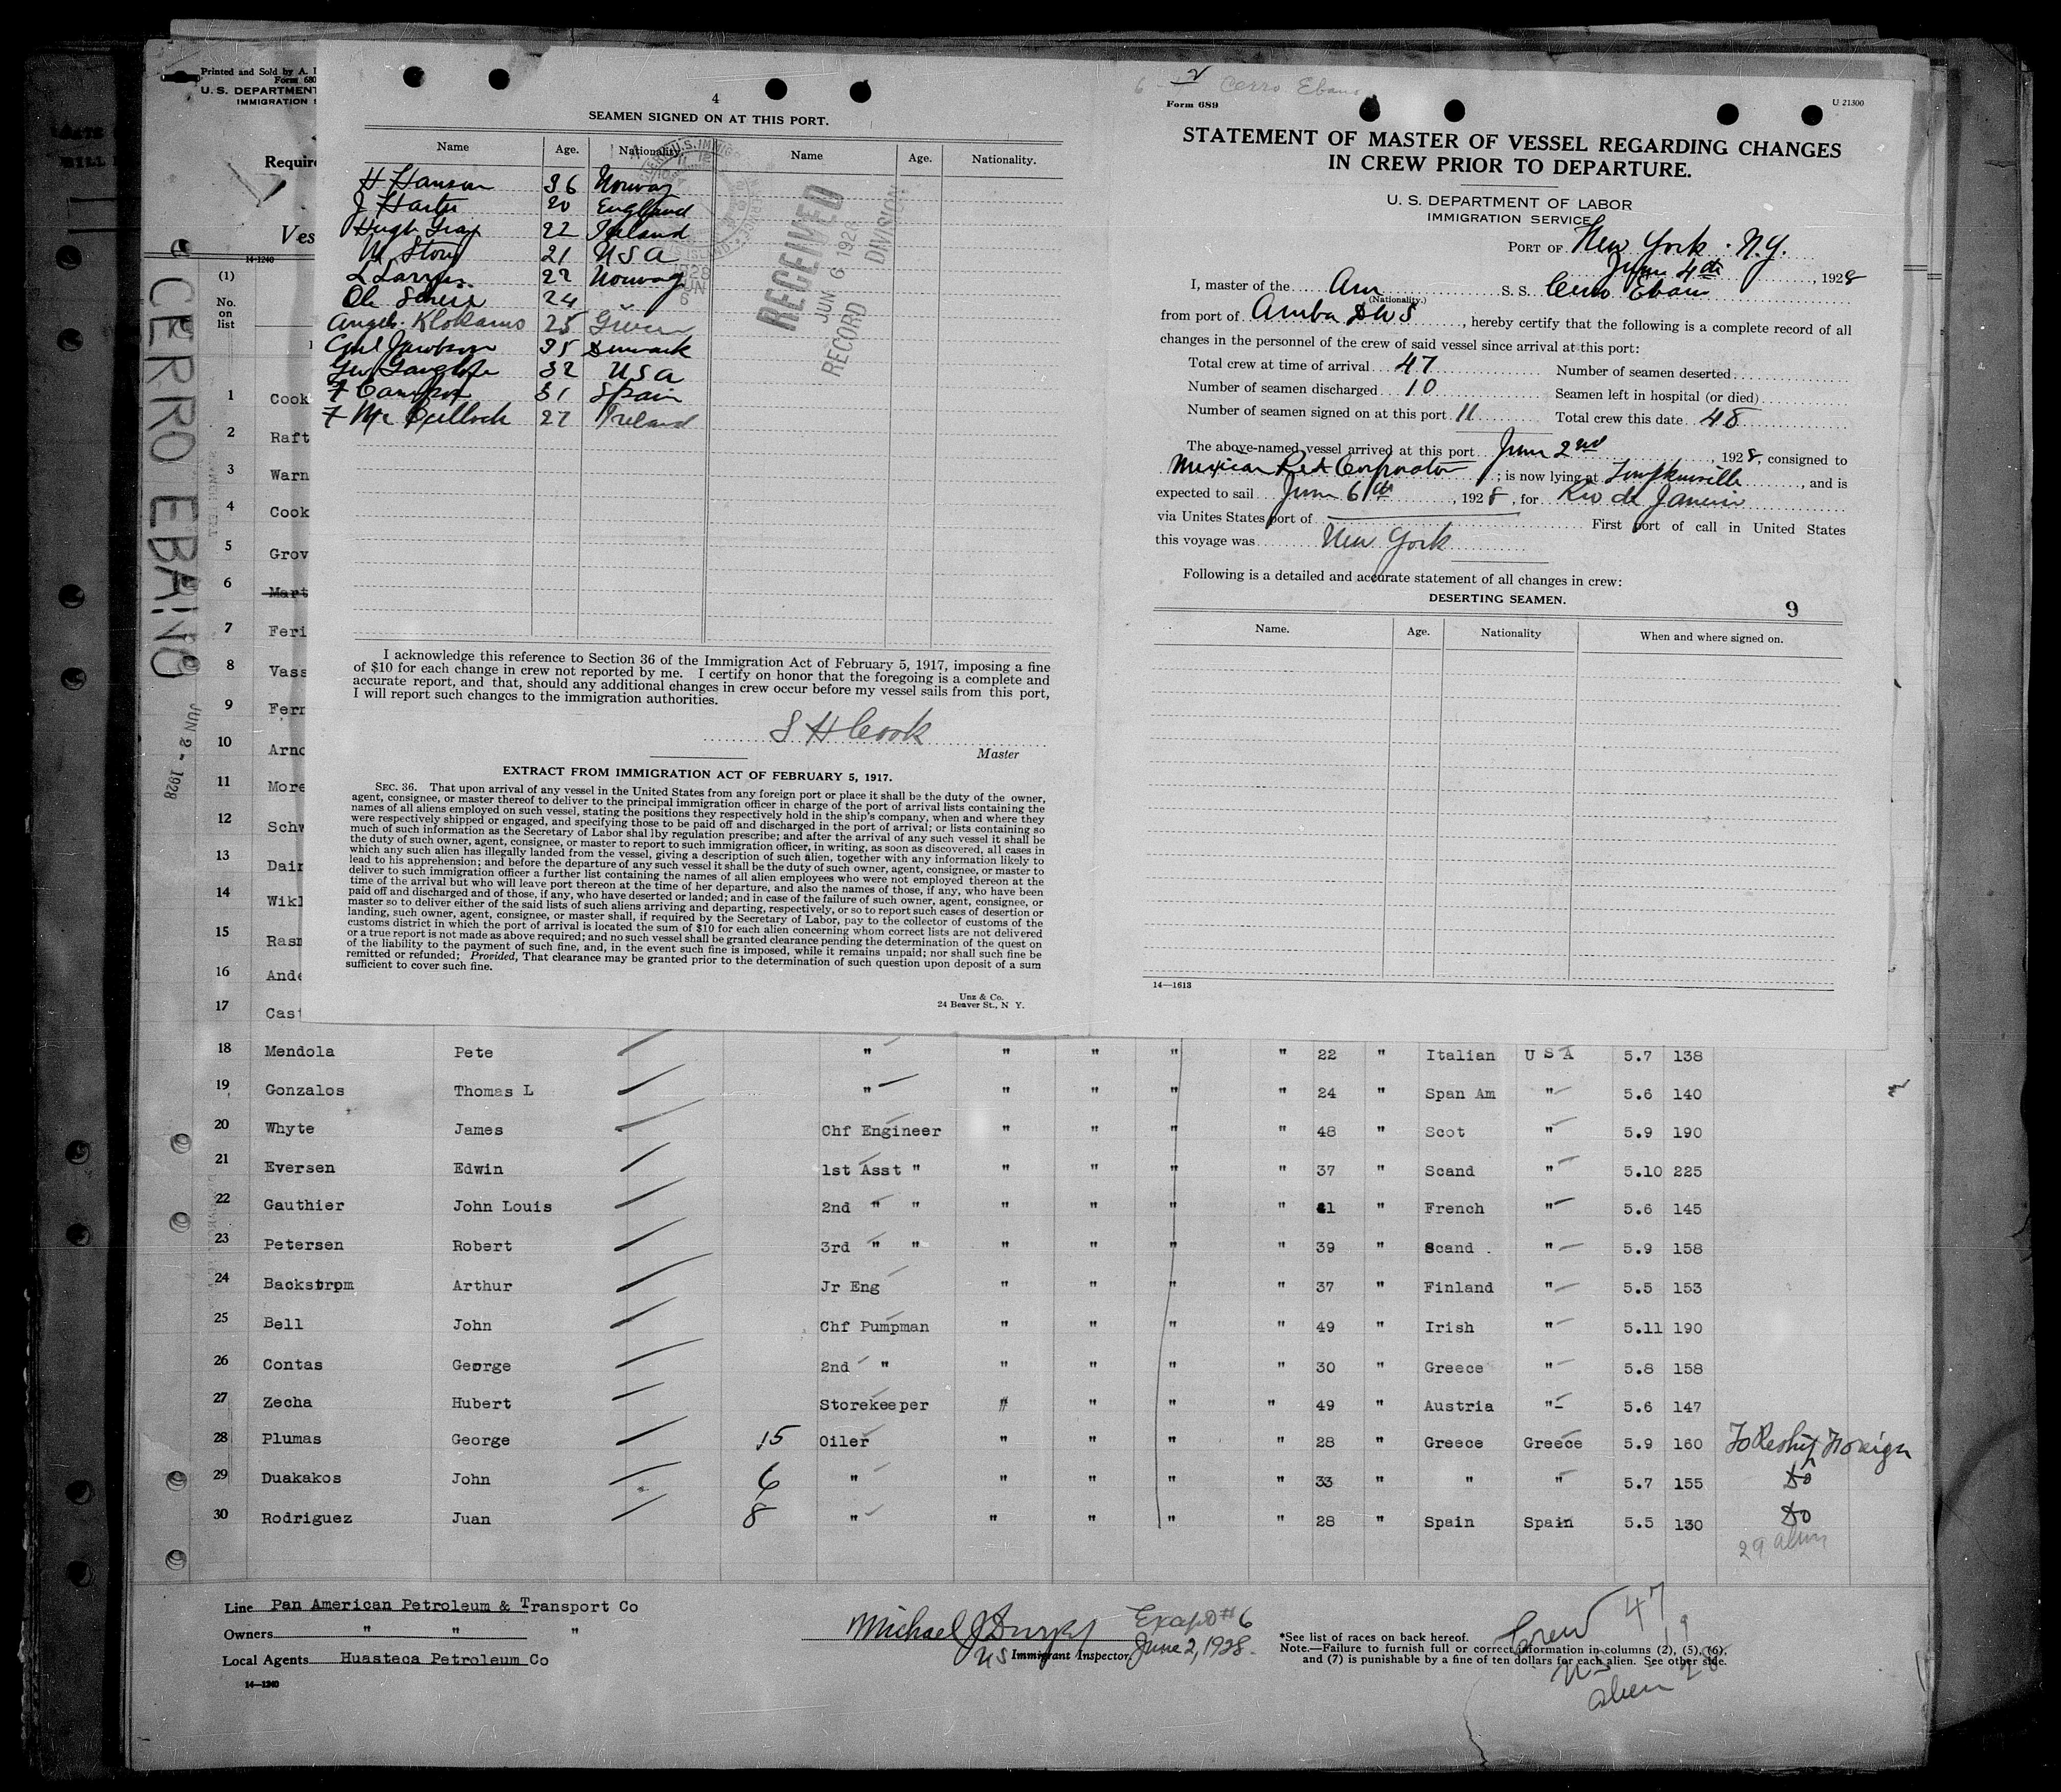 Printed and Sold by A.
Form 680
U. S. DEPARTMENT
IMMIGRATION
Require
Ves
14-1240
(1)
No.
on
list
CERRO EBANO
JUN 2 - 1928
1 Cook
2 Raft
3 Warn
4 Cook
5 Grov
6 Mart
7 Feri
8 Vass
9 Fern
10 Arno
11 More
12 Schw
13 Dair
14 Wikl
15 Rasm
16 Ande
17 Cast
4
SEAMEN SIGNED ON AT THIS PORT.
Name Age. Nationality. Name Age. Nationality.
H Hanson 36 Norway
J Harter 20 England
Hugh Gray 22 Ireland
Story 21 USA
22 Norway
Ole 24
Angeh. Klokams 25
Carl Jacobson 35 Denmark
Geo 32 USA
F Campos 31 Spain
F Mc Cullock 27 Ireland
RECEIVED
JUN 6 1928
RECORD DIVISION
I acknowledge this reference to Section 36 of the Immigration Act of February 5, 1917, imposing a fine
of $10 for each change in crew not reported by me. I certify on honor that the foregoing is a complete and
accurate report, and that, should any additional changes in crew occur before my vessel sails from this port,
I will report such changes to the immigration authorities.
S H Cook
Master
EXTRACT FROM IMMIGRATION ACT OF FEBRUARY 5, 1917.
SEC. 36. That upon arrival of any vessel in the United States from any foreign port or place it shall be the duty of the owner,
agent, consignee, or master thereof to deliver to the principal immigration officer in charge of the port of arrival lists containing the
names of all aliens employed on such vessel, stating the positions they respectively hold in the ship's company, when and where they
were respectively shipped or engaged, and specifying those to be paid off and discharged in the port of arrival; or lists containing so
much of such information as the Secretary of Labor shal lby regulation prescribe; and after the arrival of any such vessel it shall be
the duty of such owner, agent, consignee, or master to report to such immigration officer, in writing, as soon as discovered, all cases in
which any such alien has illegally landed from the vessel, giving a description of such alien, together with any information likely to
lead to his apprehension; and before the departure of any such vessel it shall be the duty of such owner, agent, consignee, or master to
deliver to such immigration officer a further list containing the names of all alien employees who were not employed thereon at the
time of the arrival but who will leave port thereon at the time of her departure, and also the names of those, if any, who have been
paid off and discharged and of those, if any, who have deserted or landed; and in case of the failure of such owner, agent, consignee, or
master so to deliver either of the said lists of such aliens arriving and departing, respectively, or so to report such cases of desertion or
landing, such owner, agent, consignee, or master shall, if required by the Secretary of Labor, pay to the collector of customs of the
customs district in which the port of arrival is located the sum of $10 for each alien concerning whom correct lists are not delivered
or a true report is not made as above required; and no such vessel shall be granted clearance pending the determination of the quest on
of the liability to the payment of such fine, and, in the event such fine is imposed, while it remains unpaid; nor shall such fine be
remitted or refunded; Provided, That clearance may be granted prior to the determination of such question upon deposit of a sum
sufficient to cover such fine.
Unz & Co.
24 Beaver St., N Y.
Cerro Ebano
Form 689
U 21300
STATEMENT OF MASTER OF VESSEL REGARDING CHANGES
IN CREW PRIOR TO DEPARTURE.
U. S. DEPARTMENT OF LABOR
IMMIGRATION SERVICE
PORT OF New York. N.Y.
June 4th, 1928
I, master of the Am S. S. Cerro Ebano
(Nationality.)
from port of Aruba DWS, hereby certify that the following is a complete record of all
changes in the personnel of the crew of said vessel since arrival at this port:
Total crew at time of arrival 47 Number of seamen deserted
Number of seamen discharged 10 Seamen left in hospital (or died)
Number of seamen signed on at this port 11 Total crew this date 48
The above-named vessel arrived at this port June 2nd, 1928, consigned to
Mexican Pet Corporation; is now lying at Tompkinsville, and is
expected to sail June 6th, 1928, for Rio de Janeiro
via Unites States port of First port of call in United States
this voyage was New York
Following is a detailed and accurate statement of all changes in crew:
DESERTING SEAMEN.
9
Name. Age. Nationality When and where signed on.
14—1613
18 Mendola Pete " " " " " 22 " Italian U S A 5.7 138
19 Gonzalos Thomas L " " " " " 24 " Span Am " 5.6 140
20 Whyte James Chf Engineer " " " " 48 " Scot " 5.9 190
21 Eversen Edwin 1st Asst " " " " " 37 " Scand " 5.10 225
22 Gauthier John Louis 2nd " " " " " " 41 " French " 5.6 145
23 Petersen Robert 3rd " " " " " " 39 " Scand . " 5.9 158
24 Backstrpm Arthur Jr Eng " " " " 37 " Finland " 5.5 153
25 Bell John Chf Pumpman " " " " 49 " Irish " 5.11 190
26 Contas George 2nd " " " " " 30 " Greece " 5.8 158
27 Zecha Hubert Storekeeper " " " " 49 " Austria " 5.6 147
28 Plumas George 15 Oiler " " " " 28 " Greece Greece 5.9 160 To Reship Foreign
29 Duakakos John 6 " " " " " 33 " " " 5.7 155 Do
30 Rodriguez Juan 8 " " " " " 28 " Spain Spain 5.5 130 Do
29 alien
Line Pan American Petroleum & Transport Co
Owners " " "
Local Agents Huasteca Petroleum Co
14—1240
Michael J
US Immigrant Inspector
June 2, 1928.
*See list of races on back hereof.
Note.—Failure to furnish full or correct information in columns (2), (5), (6),
and (7) is punishable by a fine of ten dollars for each alien. See other side.
Crew 47
US 19
alien 28